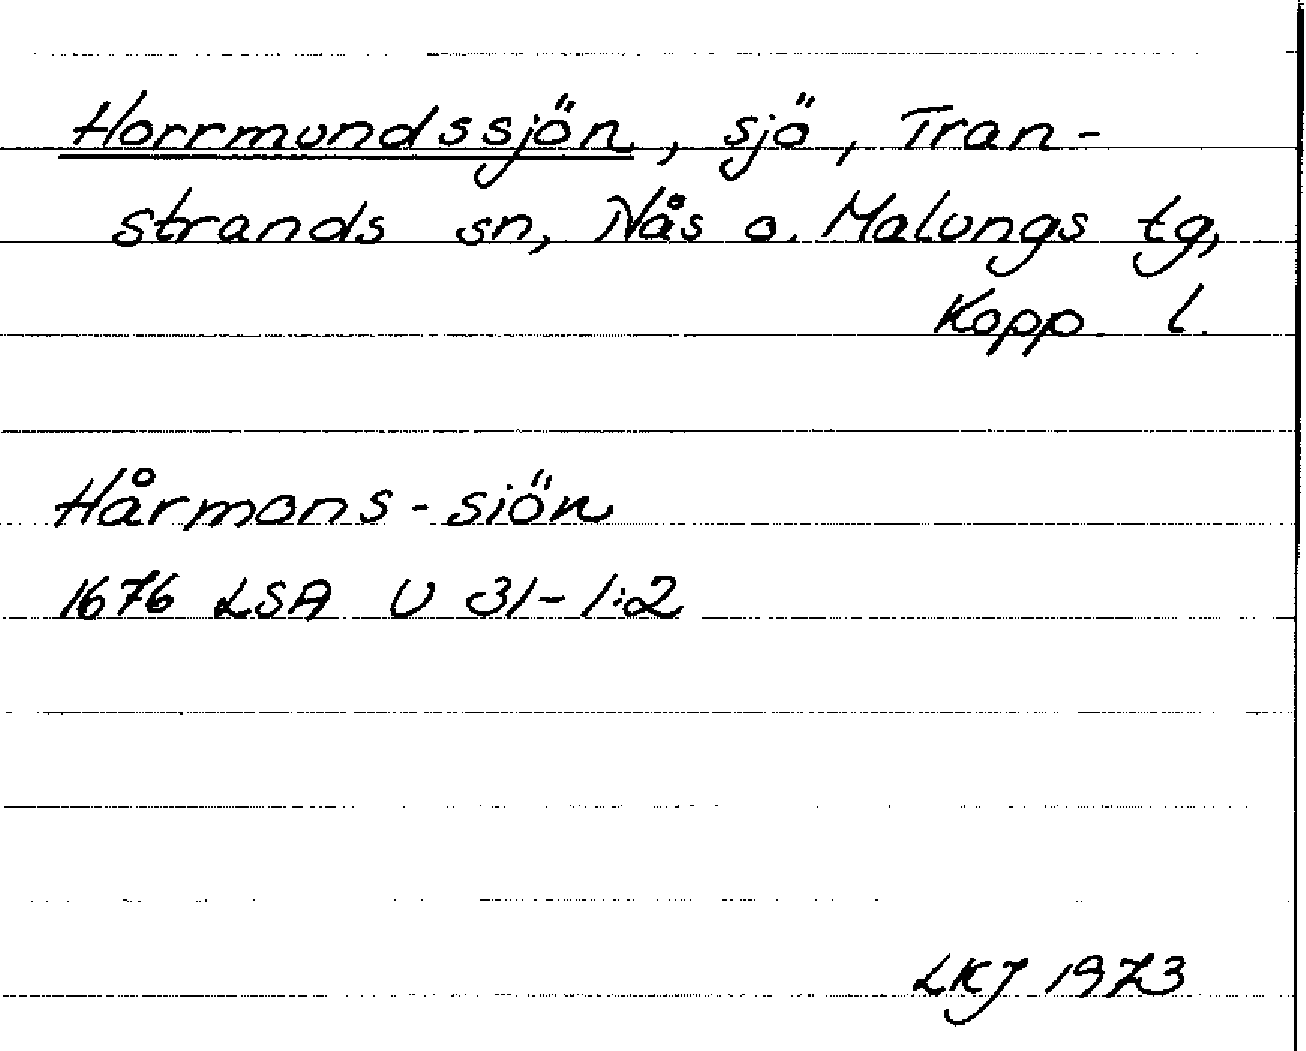 Horrmundssjön, sjö, Tran-
strands sn, Nås o. Malungs tg,
Kopp. l.
Hårmons-siön
1676 LSA U 31-1:2
LKJ 1973